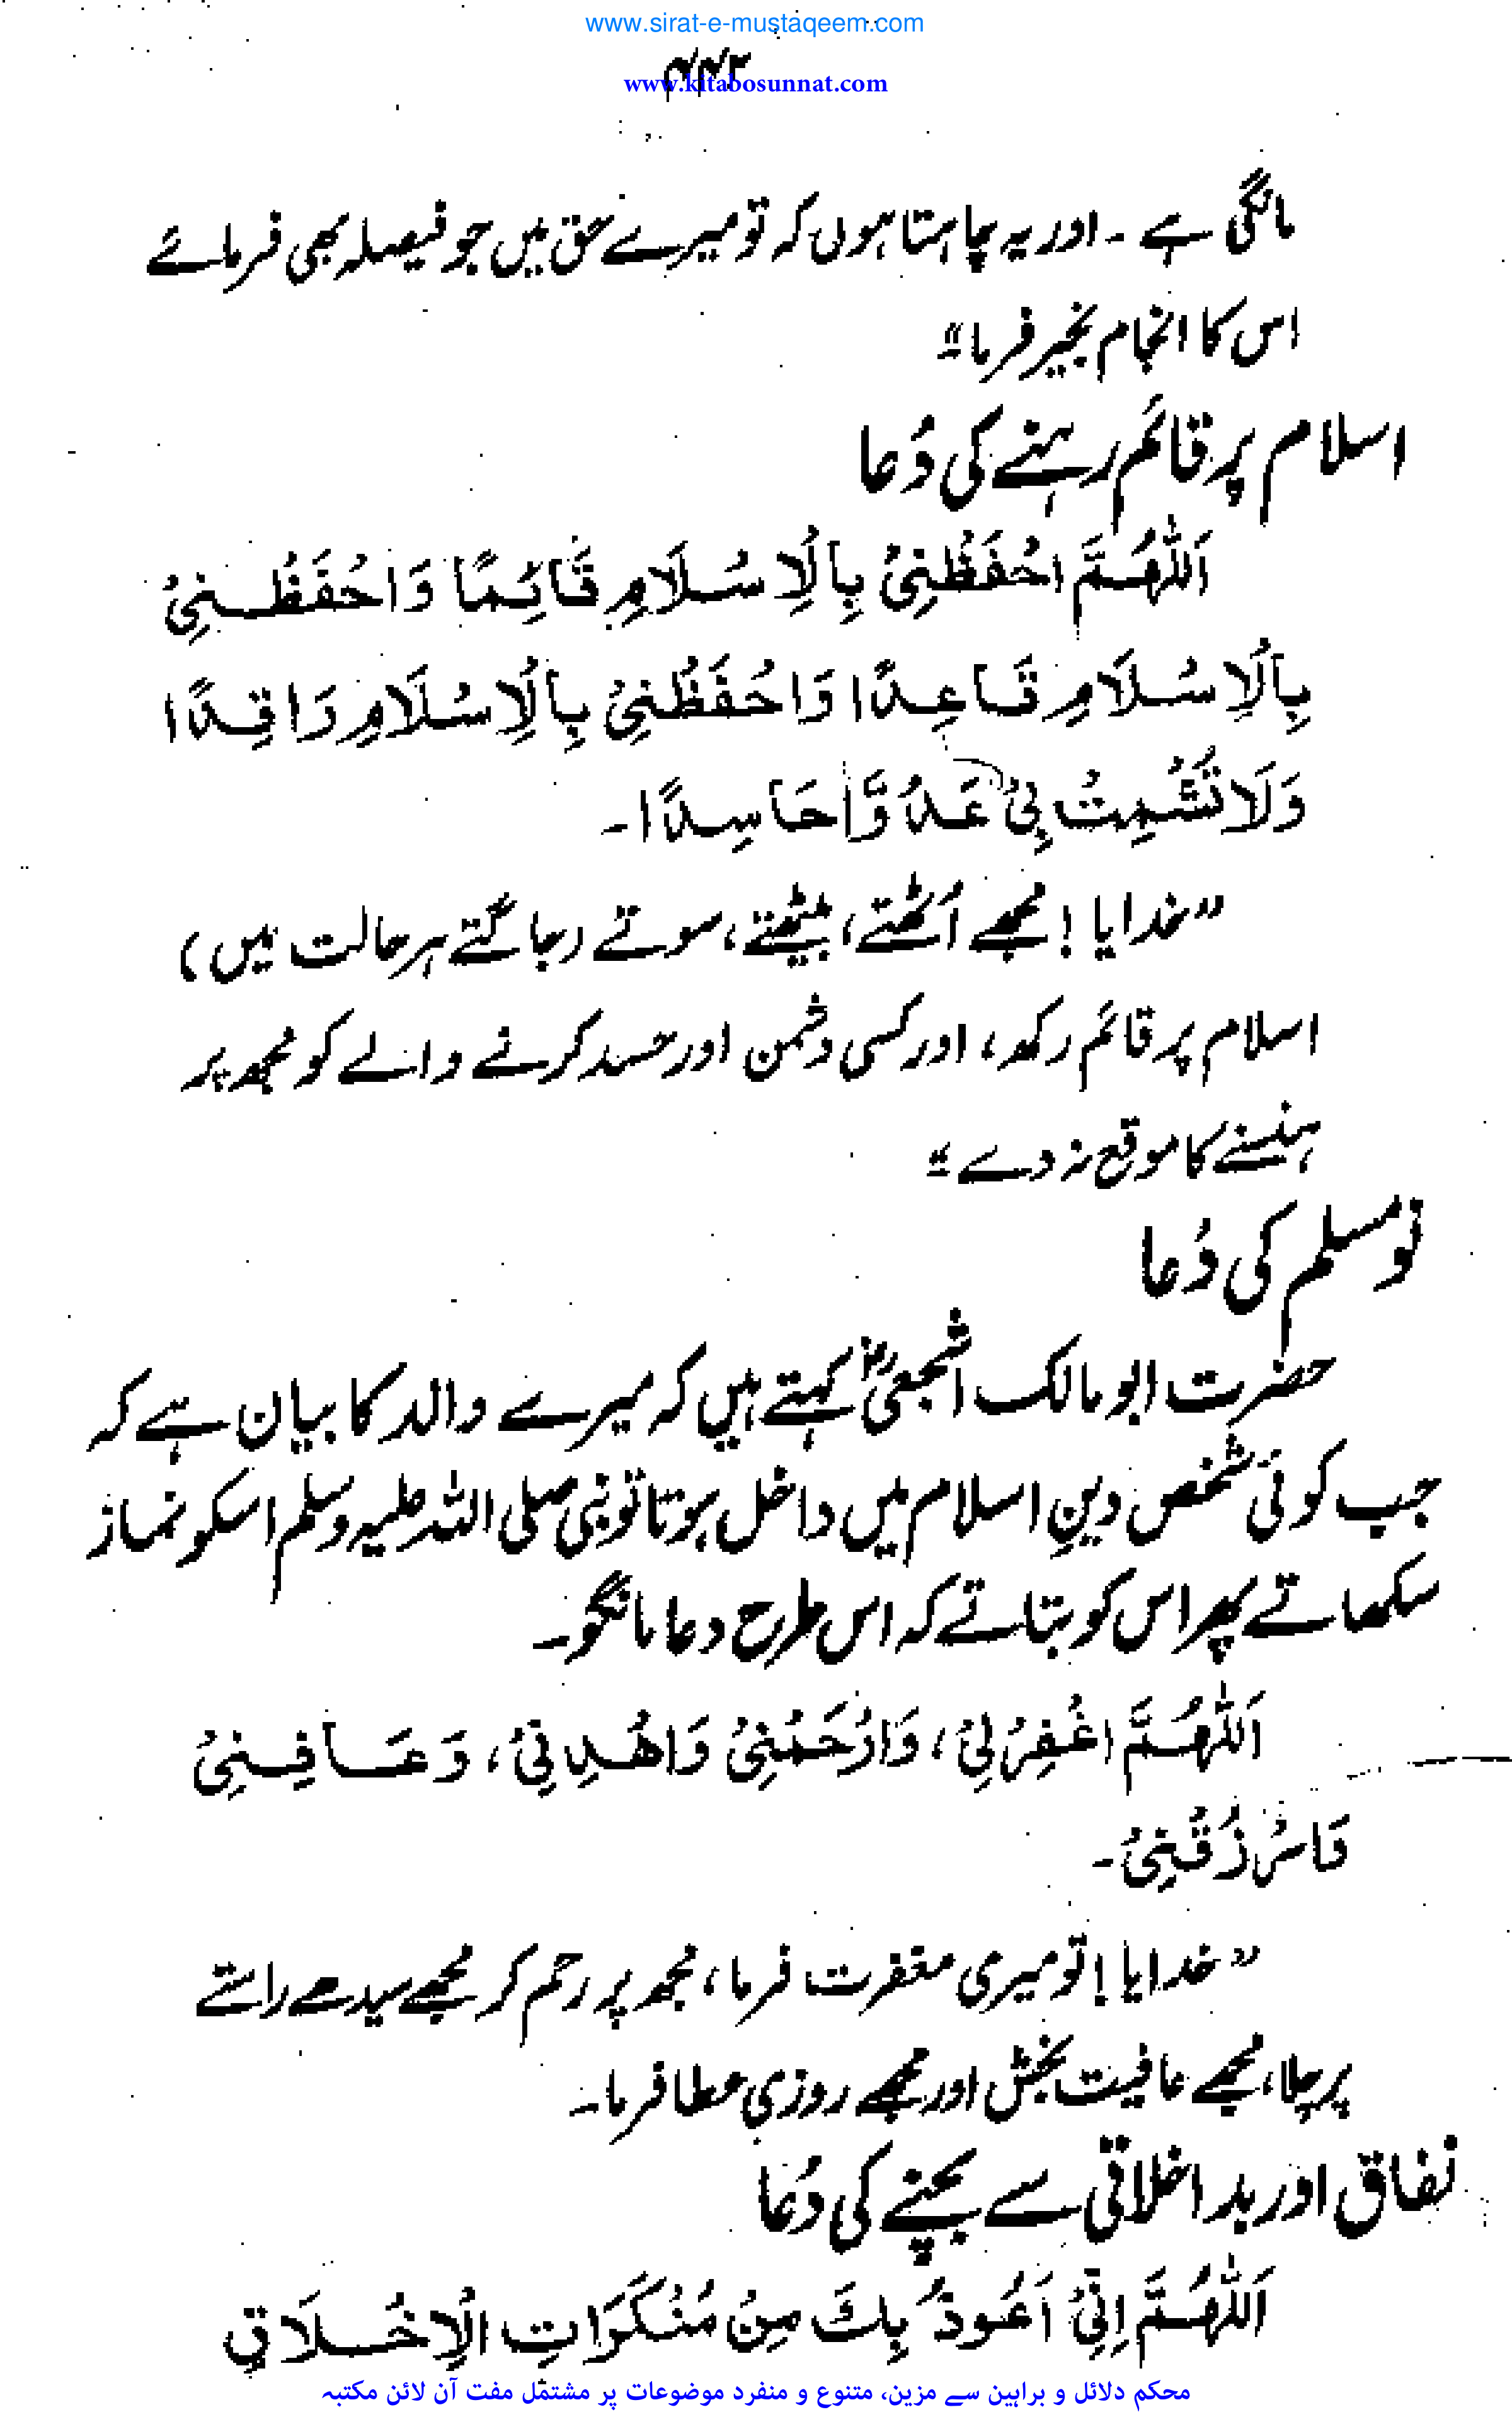 www.sirat-e-mustaqeem.com
www.kitabosunnat.com
مانگی ہے ۔ اور یہ چاہتا ہوں کہ تو میرے حق میں جو فیصلہ بھی فرمائے
اس کا انجام بخیر فرما"۔
اسلام پر قائم رہنے کی دُعا
اَللّٰهُمَّ احْفَظْنِیْ بِالْاِسْلَامِ قَائِمًا وَاحْفَظْنِیْ
بِالْاِسْلَامِ قَاعِدًا وَاحْفَظْنِیْ بِالْاِسْلَامِ رَاقِدًا
وَلَا تُشْمِتْ بِیْ عَدُوًّا حَاسِدًا۔
"خدایا! مجھے اُٹھتے، بیٹھتے، سوتے (جاگتے ہر حالت میں)
اسلام پر قائم رکھ، اور کسی دشمن اور حسد کرنے والے کو مجھ پر
ہنسنے کا موقع نہ دے"۔
نو مسلم کی دُعا
حضرت ابو مالک اشجعیؓ کہتے ہیں کہ میرے والد کا بیان ہے کہ
جب کوئی شخص دینِ اسلام میں داخل ہوتا تو نبی صلی اللہ علیہ وسلم اسکو نماز
سکھاتے پھر اس کو بتاتے کہ اس طرح دعا مانگو۔
اَللّٰهُمَّ اغْفِرْ لِیْ، وَارْحَمْنِیْ وَاهْدِنِیْ، وَعَافِنِیْ
وَارْزُقْنِیْ۔
"خدایا! تو میری مغفرت فرما، مجھ پر رحم کر مجھے سیدھے راستے
پر چلا، مجھے عافیت بخش اور مجھے روزی عطا فرما۔
نفاق اور بد اخلاقی سے بچنے کی دُعا
اَللّٰهُمَّ اِنِّیْ اَعُوْذُ بِكَ مِنْ مُنْكَرَاتِ الْاِخْلَاقِ
محکم دلائل و براہین سے مزین، متنوع و منفرد موضوعات پر مشتمل مفت آن لائن مکتبہ